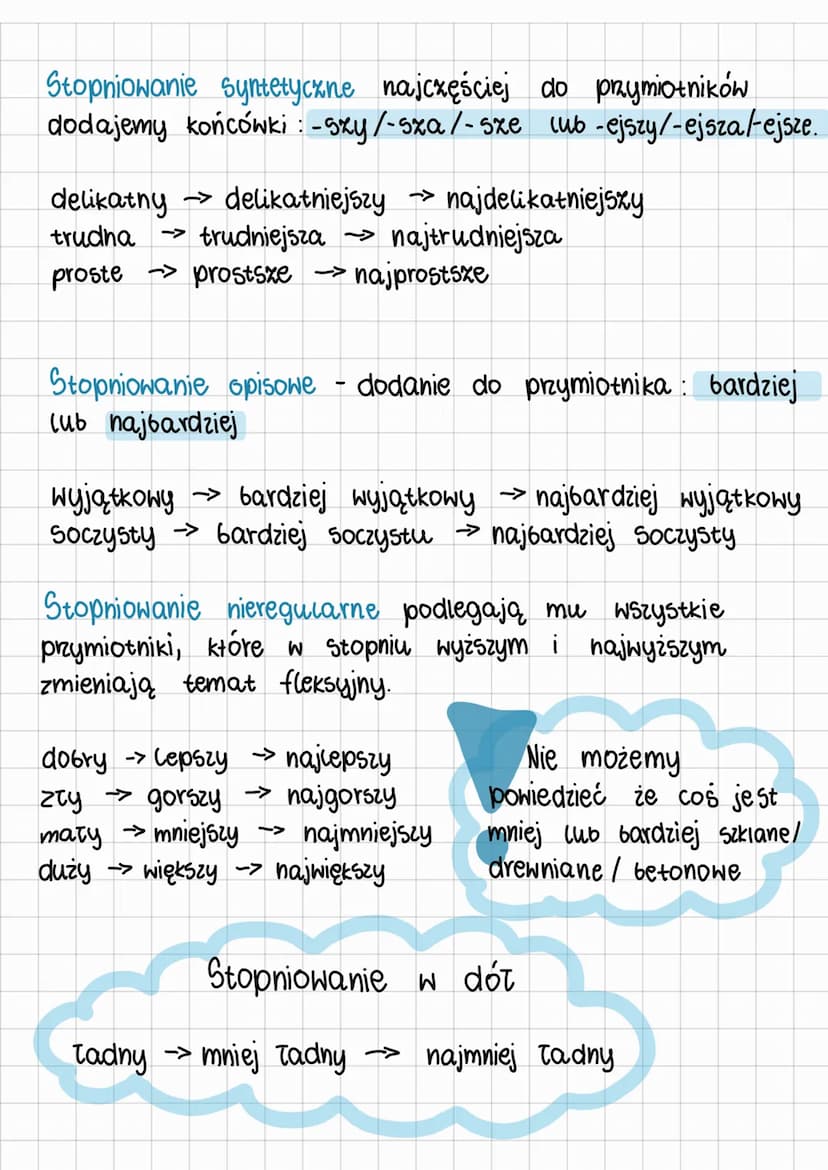 Stopniowanie syntetyczne najczęściej do przymiotników
dodajemy końcówki : -szy/-sza/-sze lub -ejszy/-ejsza/-ejsze.
delikatny → delikatniejszy → najdelikatniejszy
trudna → trudniejsza → najtrudniejsza
proste → prostsze → najprostsze
Stopniowanie opisowe - dodanie do przymiotnika : bardziej
lub najbardziej
wyjątkowy → bardziej wyjątkowy → najbardziej wyjątkowy
soczysty → bardziej soczystu → najbardziej soczysty
Stopniowanie nieregularne podlegają mu wszystkie
przymiotniki, które w stopniu wyższym i najwyższym
zmieniają temat fleksyjny.
dobry → lepszy → najlepszy
zły → gorszy → najgorszy
mały → mniejszy → najmniejszy
duży → większy → największy
Nie możemy
powiedzieć że coś jest
mniej lub bardziej szklane/
drewniane / betonowe
Stopniowanie w dół
ładny → mniej ładny → najmniej ładny